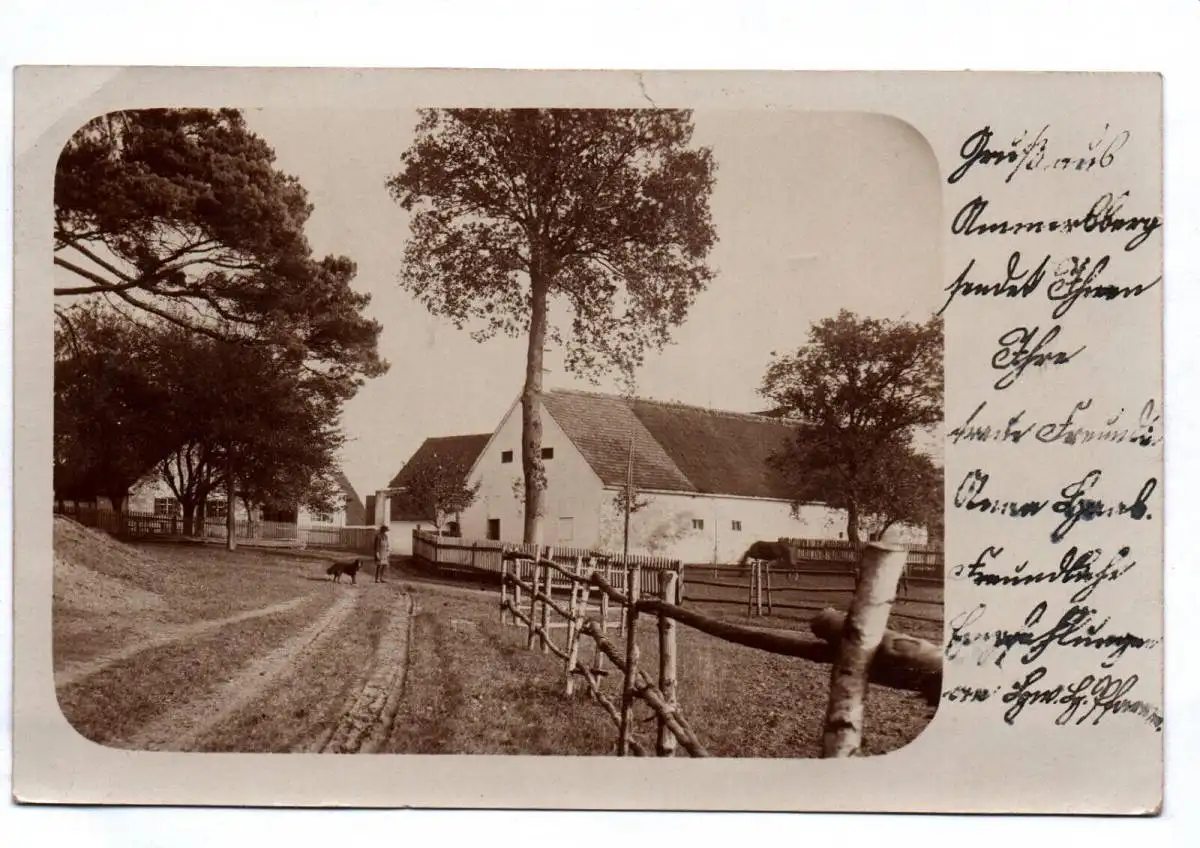 Gruß aus
Ammersberg
sendet Ihnen
Ihre
Freundin
Anna
Freundliche
Empfehlungen
an